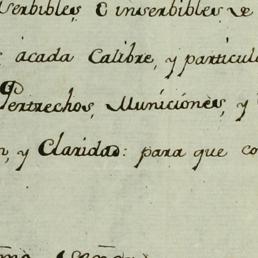 serbibles, é inserbibles, de
acada Calibre, y particul
Pertrechos, Municiónes, y
y Claridad: para que co